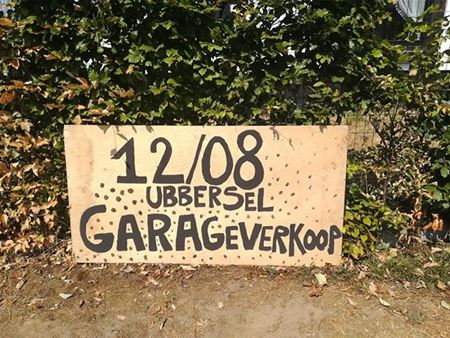 12/08
UBBERSEL
GARAGEVERKOOP